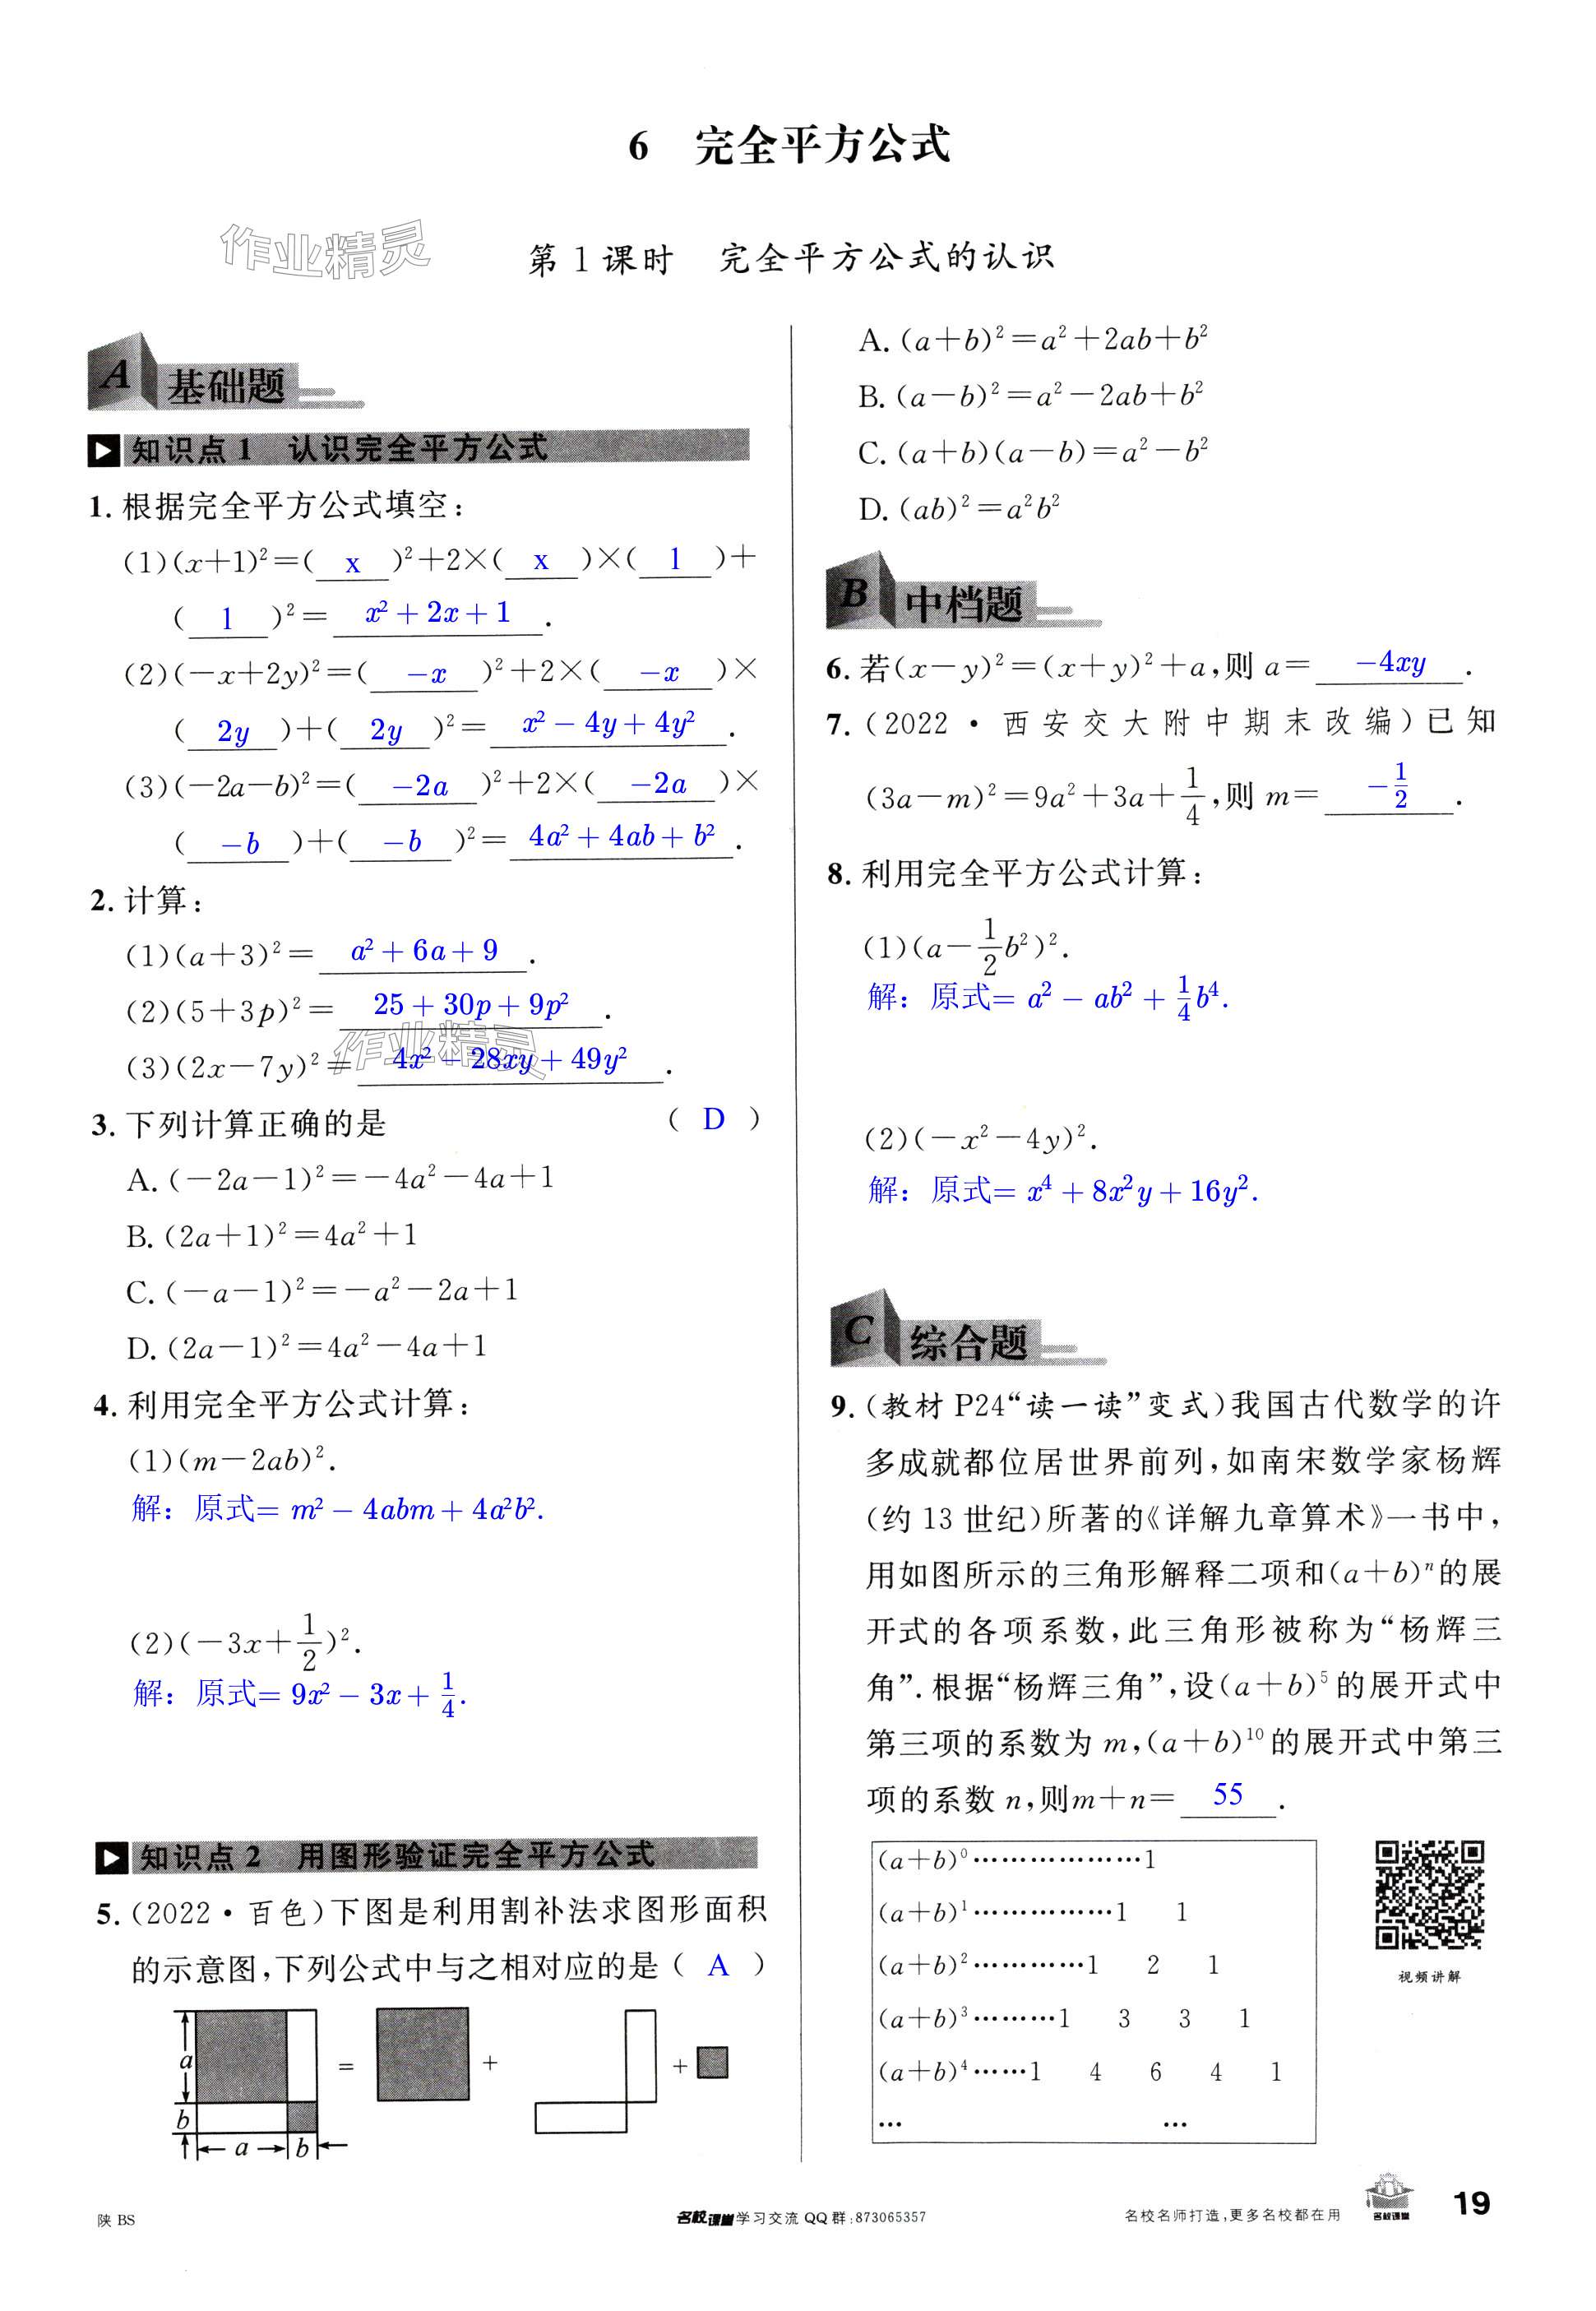 6 完全平方公式
作业精灵
第 1 课时 完全平方公式的认识
A 基础题
知识点 1 认识完全平方公式
1. 根据完全平方公式填空：
(1)(x+1)²=( x )²+2×( x )×( 1 )+
( 1 )²= x²+2x+1 .
(2)(−x+2y)²=( −x )²+2×( −x )×
( 2y )+( 2y )²= x²−4y+4y² .
(3)(−2a−b)²=( −2a )²+2×( −2a )×
( −b )+( −b )²= 4a²+4ab+b² .
2. 计算：
(1)(a+3)²= a²+6a+9 .
(2)(5+3p)²= 25+30p+9p² .
作业精灵
(3)(2x−7y)²= 4x²−28xy+49y² .
3. 下列计算正确的是 ( D )
A. (−2a−1)²=−4a²−4a+1
B. (2a+1)²=4a²+1
C. (−a−1)²=−a²−2a+1
D. (2a−1)²=4a²−4a+1
4. 利用完全平方公式计算：
(1)(m−2ab)².
解：原式= m²−4abm+4a²b².
(2)(−3x+1/2)².
解：原式= 9x²−3x+1/4.
知识点 2 用图形验证完全平方公式
5. (2022·百色)下图是利用割补法求图形面积
的示意图，下列公式中与之相对应的是 ( A )
a
b
a b
= + +
A. (a+b)²=a²+2ab+b²
B. (a−b)²=a²−2ab+b²
C. (a+b)(a−b)=a²−b²
D. (ab)²=a²b²
B 中档题
6. 若(x−y)²=(x+y)²+a，则 a= −4xy .
7. (2022·西安交大附中期末改编)已知
(3a−m)²=9a²+3a+1/4，则 m= −1/2 .
8. 利用完全平方公式计算：
(1)(a−1/2b²)².
解：原式= a²−ab²+1/4b⁴.
(2)(−x²−4y)².
解：原式= x⁴+8x²y+16y².
C 综合题
9. (教材 P24“读一读”变式)我国古代数学的许
多成就都位居世界前列，如南宋数学家杨辉
(约 13 世纪)所著的《详解九章算术》一书中，
用如图所示的三角形解释二项和(a+b)ⁿ的展
开式的各项系数，此三角形被称为“杨辉三
角”. 根据“杨辉三角”，设(a+b)⁵的展开式中
第三项的系数为 m，(a+b)¹⁰的展开式中第三
项的系数 n，则m+n= 55 .
(a+b)⁰………………1
(a+b)¹……………1 1
(a+b)²…………1 2 1
(a+b)³………1 3 3 1
(a+b)⁴……1 4 6 4 1
… …
视频讲解
陕 BS
名校课堂学习交流 QQ 群：873065357
名校名师打造，更多名校都在用
名校课堂
19